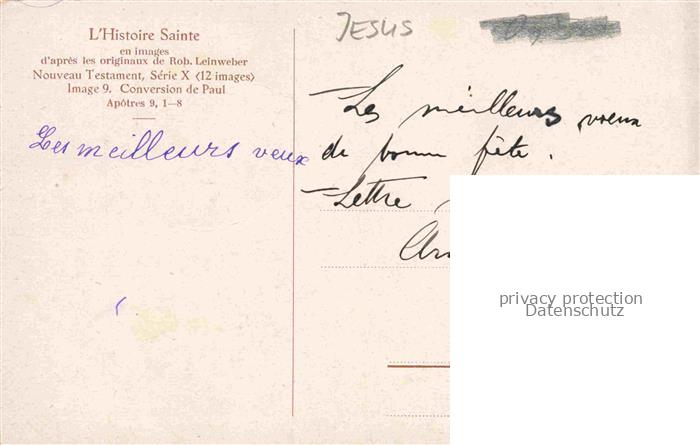 L'Histoire Sainte
en images
d'après les originaux de Rob. Leinweber
Nouveau Testament, Série X (12 images)
Image 9. Conversion de Paul
Apôtres 9, 1—8
Les meilleurs veux
JESUS
Les meilleurs voeux
de bonne fête.
Lettre
privacy protection
Datenschutz